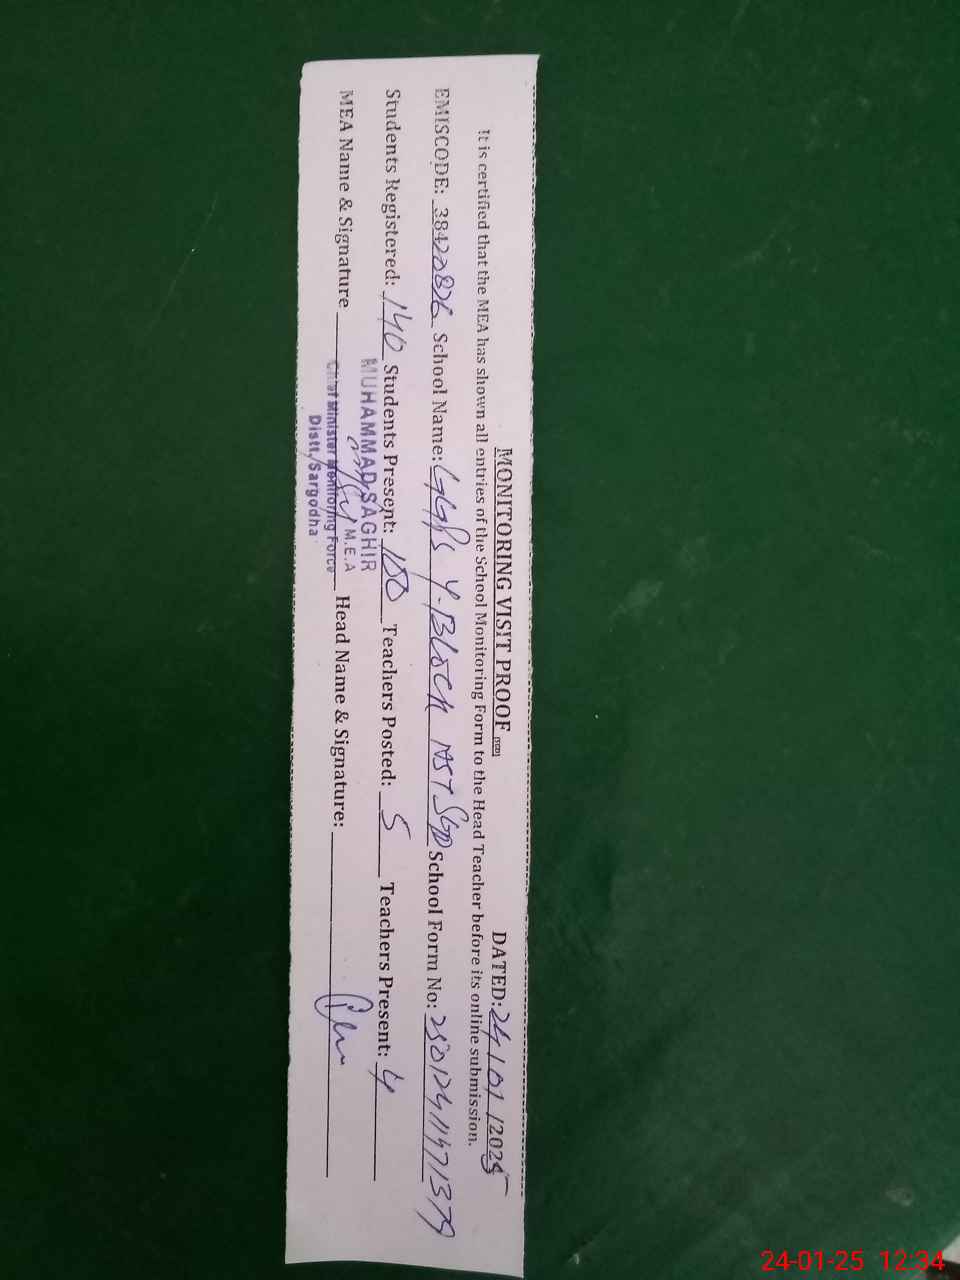 MONITORING VISIT PROOF (SED) DATED: 24/01/2025
It is certified that the MEA has shown all entries of the School Monitoring Form to the Head Teacher before its online submission.
EMISCODE: 38420826 School Name: GGPS Y-BLOCK NST SGD School Form No:
Students Registered: 140 Students Present: 100 Teachers Posted: 5 Teachers Present: 4
MEA Name & Signature Head Name & Signature:
MUHAMMAD SAGHIR
M.E.A
Chief Minister Monitoring Force
Distt. Sargodha
24-01-25 12:34